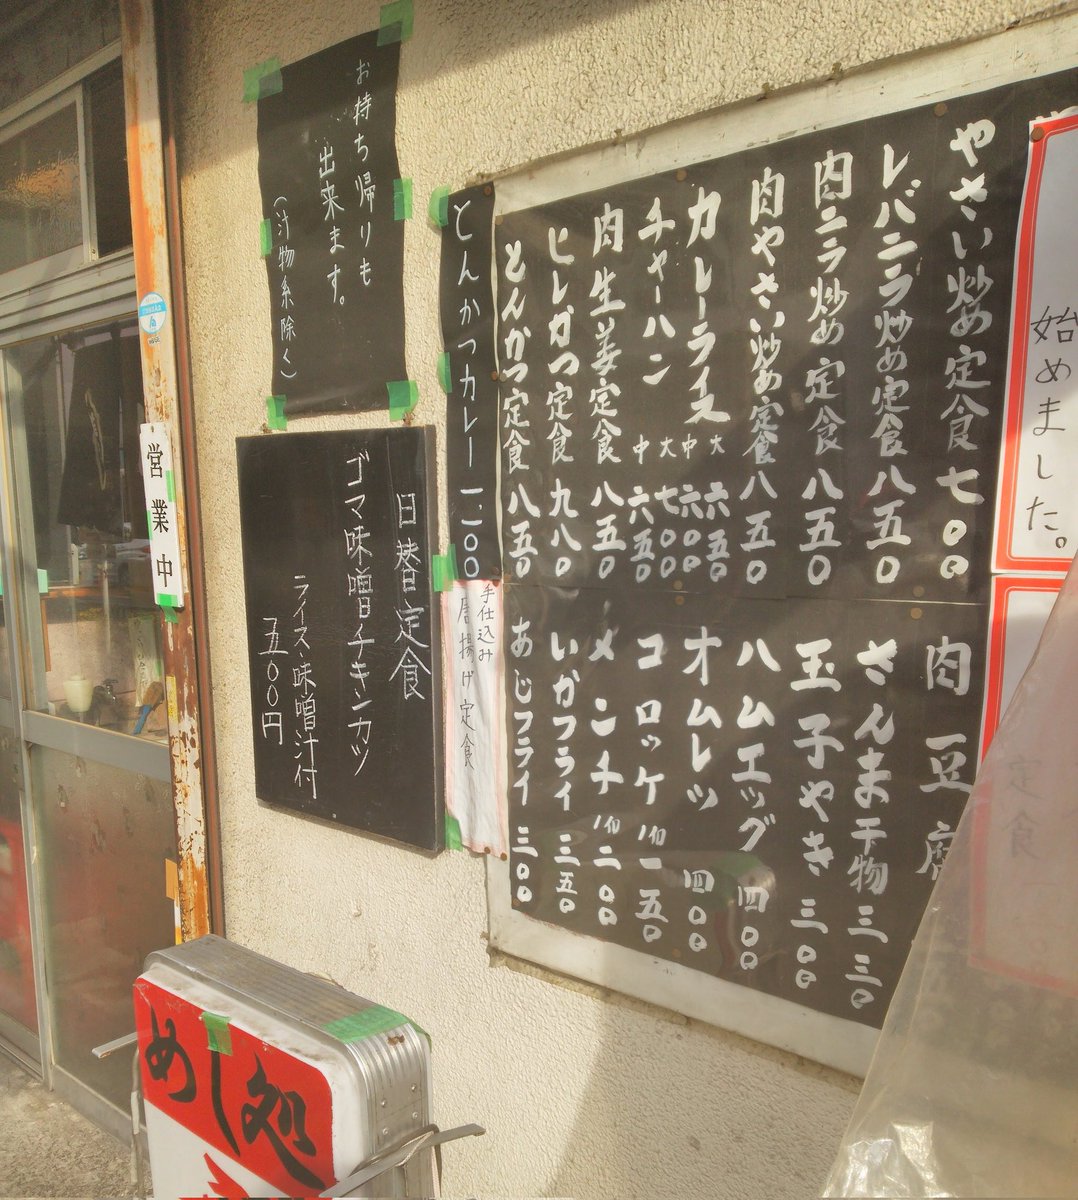 始めました。
やさい炒め定食 七〇〇
レバニラ炒め定食 八五〇
肉ニラ炒め定食 八五〇
肉やさい炒め定食 八五〇
カレーライス 大 六五〇
中 六〇〇
チャーハン 大 七〇〇
中 六五〇
肉生姜定食 八五〇
ヒレかつ定食 九八〇
とんかつ定食 八五〇
肉豆腐
さんま干物 三三〇
玉子やき 三〇〇
ハムエッグ 四〇〇
オムレツ 四〇〇
コロッケ 一五〇
メンチ 二〇〇
いかフライ 三五〇
あじフライ 三〇〇
定食
とんかつカレー 一、一〇〇
手仕込み
唐揚げ定食
お持ち帰りも
出来ます。
(汁物系除く)
日替定食
ゴマ味噌チキンカツ
ライス・味噌汁付
五〇〇円
営業中
めし処